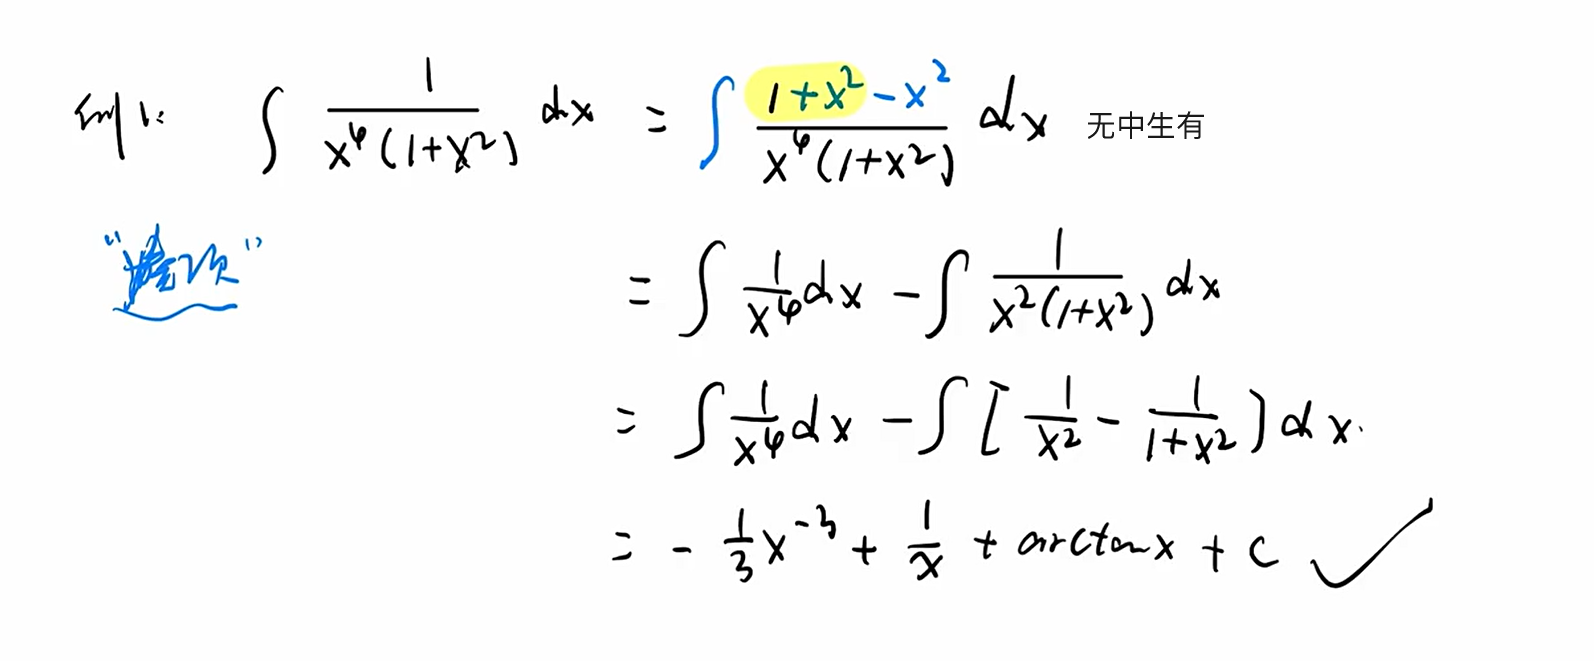 例1: ∫ 1/(x⁴(1+x²)) dx = ∫ (1+x²-x²)/(x⁴(1+x²)) dx 无中生有
= ∫ 1/x⁴ dx - ∫ 1/(x²(1+x²)) dx
= ∫ 1/x⁴ dx - ∫ [1/x² - 1/(1+x²)] dx.
= - 1/3 x⁻³ + 1/x + arctanx + c